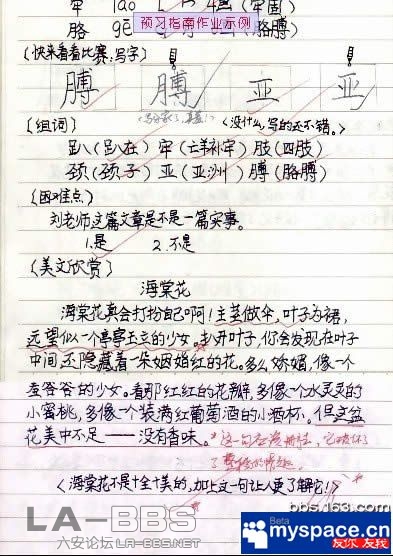 牢 láo 宀 4画 (牢固)
胳 gē (胳膊)
预习指南作业示例
(快来看看比赛，写字)
膊 膊 亚 亚
(组词) (没什么，写的还不错。)
趴(趴在) 牢(亡羊补牢) 肢(四肢)
颈(颈子) 亚(亚洲) 膊(胳膊)
(困难点)
刘老师这篇文章是不是一篇实事。
1.是 2.不是
(美文欣赏)
海棠花
海棠花真会打扮自己啊！主茎做伞，叶子为裙，
远望似一个亭亭玉立的少女。扒开叶子，你会发现在叶子
中间还隐藏着一朵姻姻红的花。多么娇媚，像一个
羞答答的少女。看那红红的花瓣，多像一个水灵灵的
小蜜桃，多像一个装满红葡萄酒的小酒杯。但这盆
花美中不足——没有香味。
(海棠花不是十全十美的，加上这一句让人更了解它！)
bbs.163.com
LA-BBS
六安论坛LA-BBS.NET
Beta
myspace.cn
友你友我